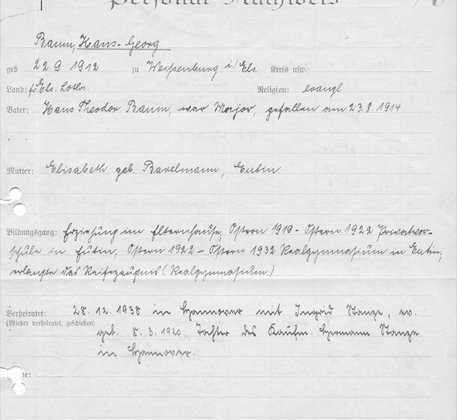 Personal-Nachweis
Baum, Hans-Georg
geb 22.9 1912 zu Weißenburg i/Els. Kreis usw.
Land: f. Els. Lothr. Religion: evangl
Vater: Hans Theodor Baum, war Major, gefallen am 23.8.1914
Mutter: Elisabeth geb. Bavelmann, Eutin
Bildungsgang: Erziehung im Elternhause, Ostern 1919 - Ostern 1922 Privatvor-
schule in Eutin, Ostern 1922 - Ostern 1932 Realgymnasium in Eutin,
erlangte das Reifezeugnis (Realgymnasium)
Verheiratet: 28.12.1938 in Hannover mit Ingrid Stange, ev.
(Wieder verheiratet, geschieden) geb. 8.3.1920, Tochter des Kaufm. Hermann Stange
in Hannover.